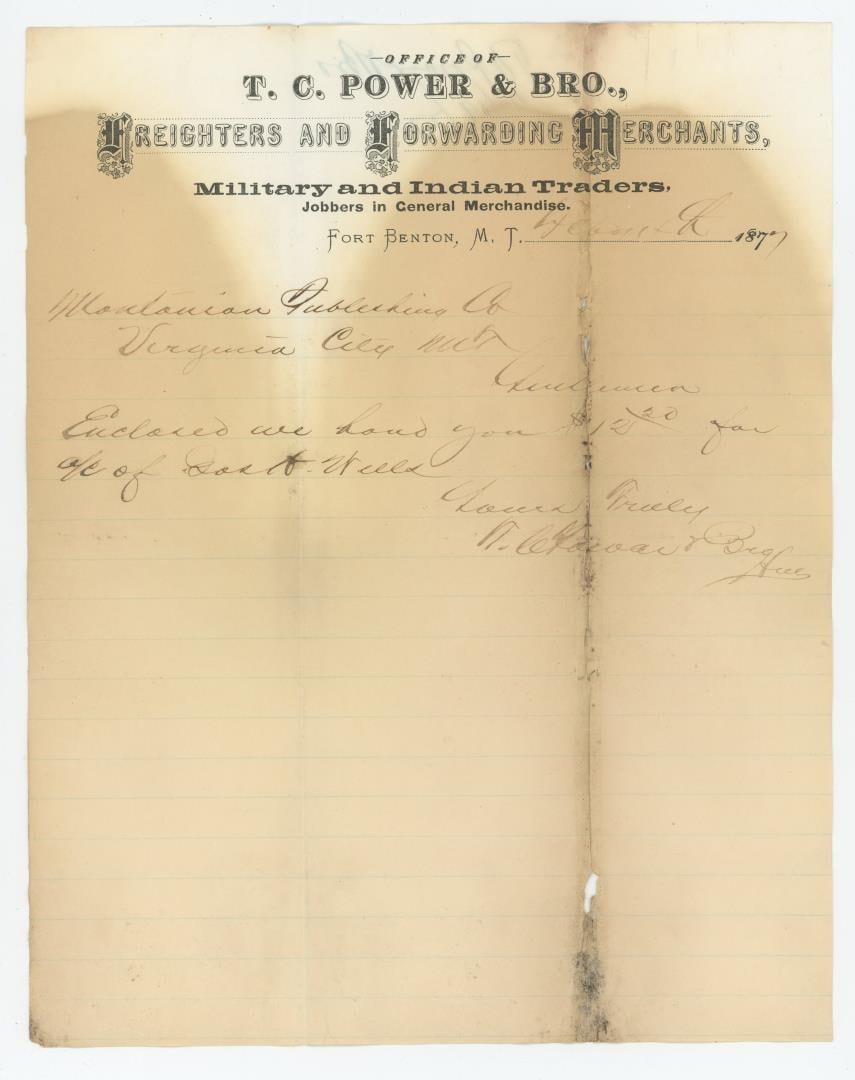 OFFICE OF
T. C. POWER & BRO.,
FREIGHTERS AND FORWARDING MERCHANTS,
Military and Indian Traders,
Jobbers in General Merchandise.
FORT BENTON, M. T. 1877
Montanian Publishing Co
Virginia City M.T
Gentlemen
Enclosed we hand you $12 20 for
a/c of H. Wells
Yours Truly
T. C. Power & Bro